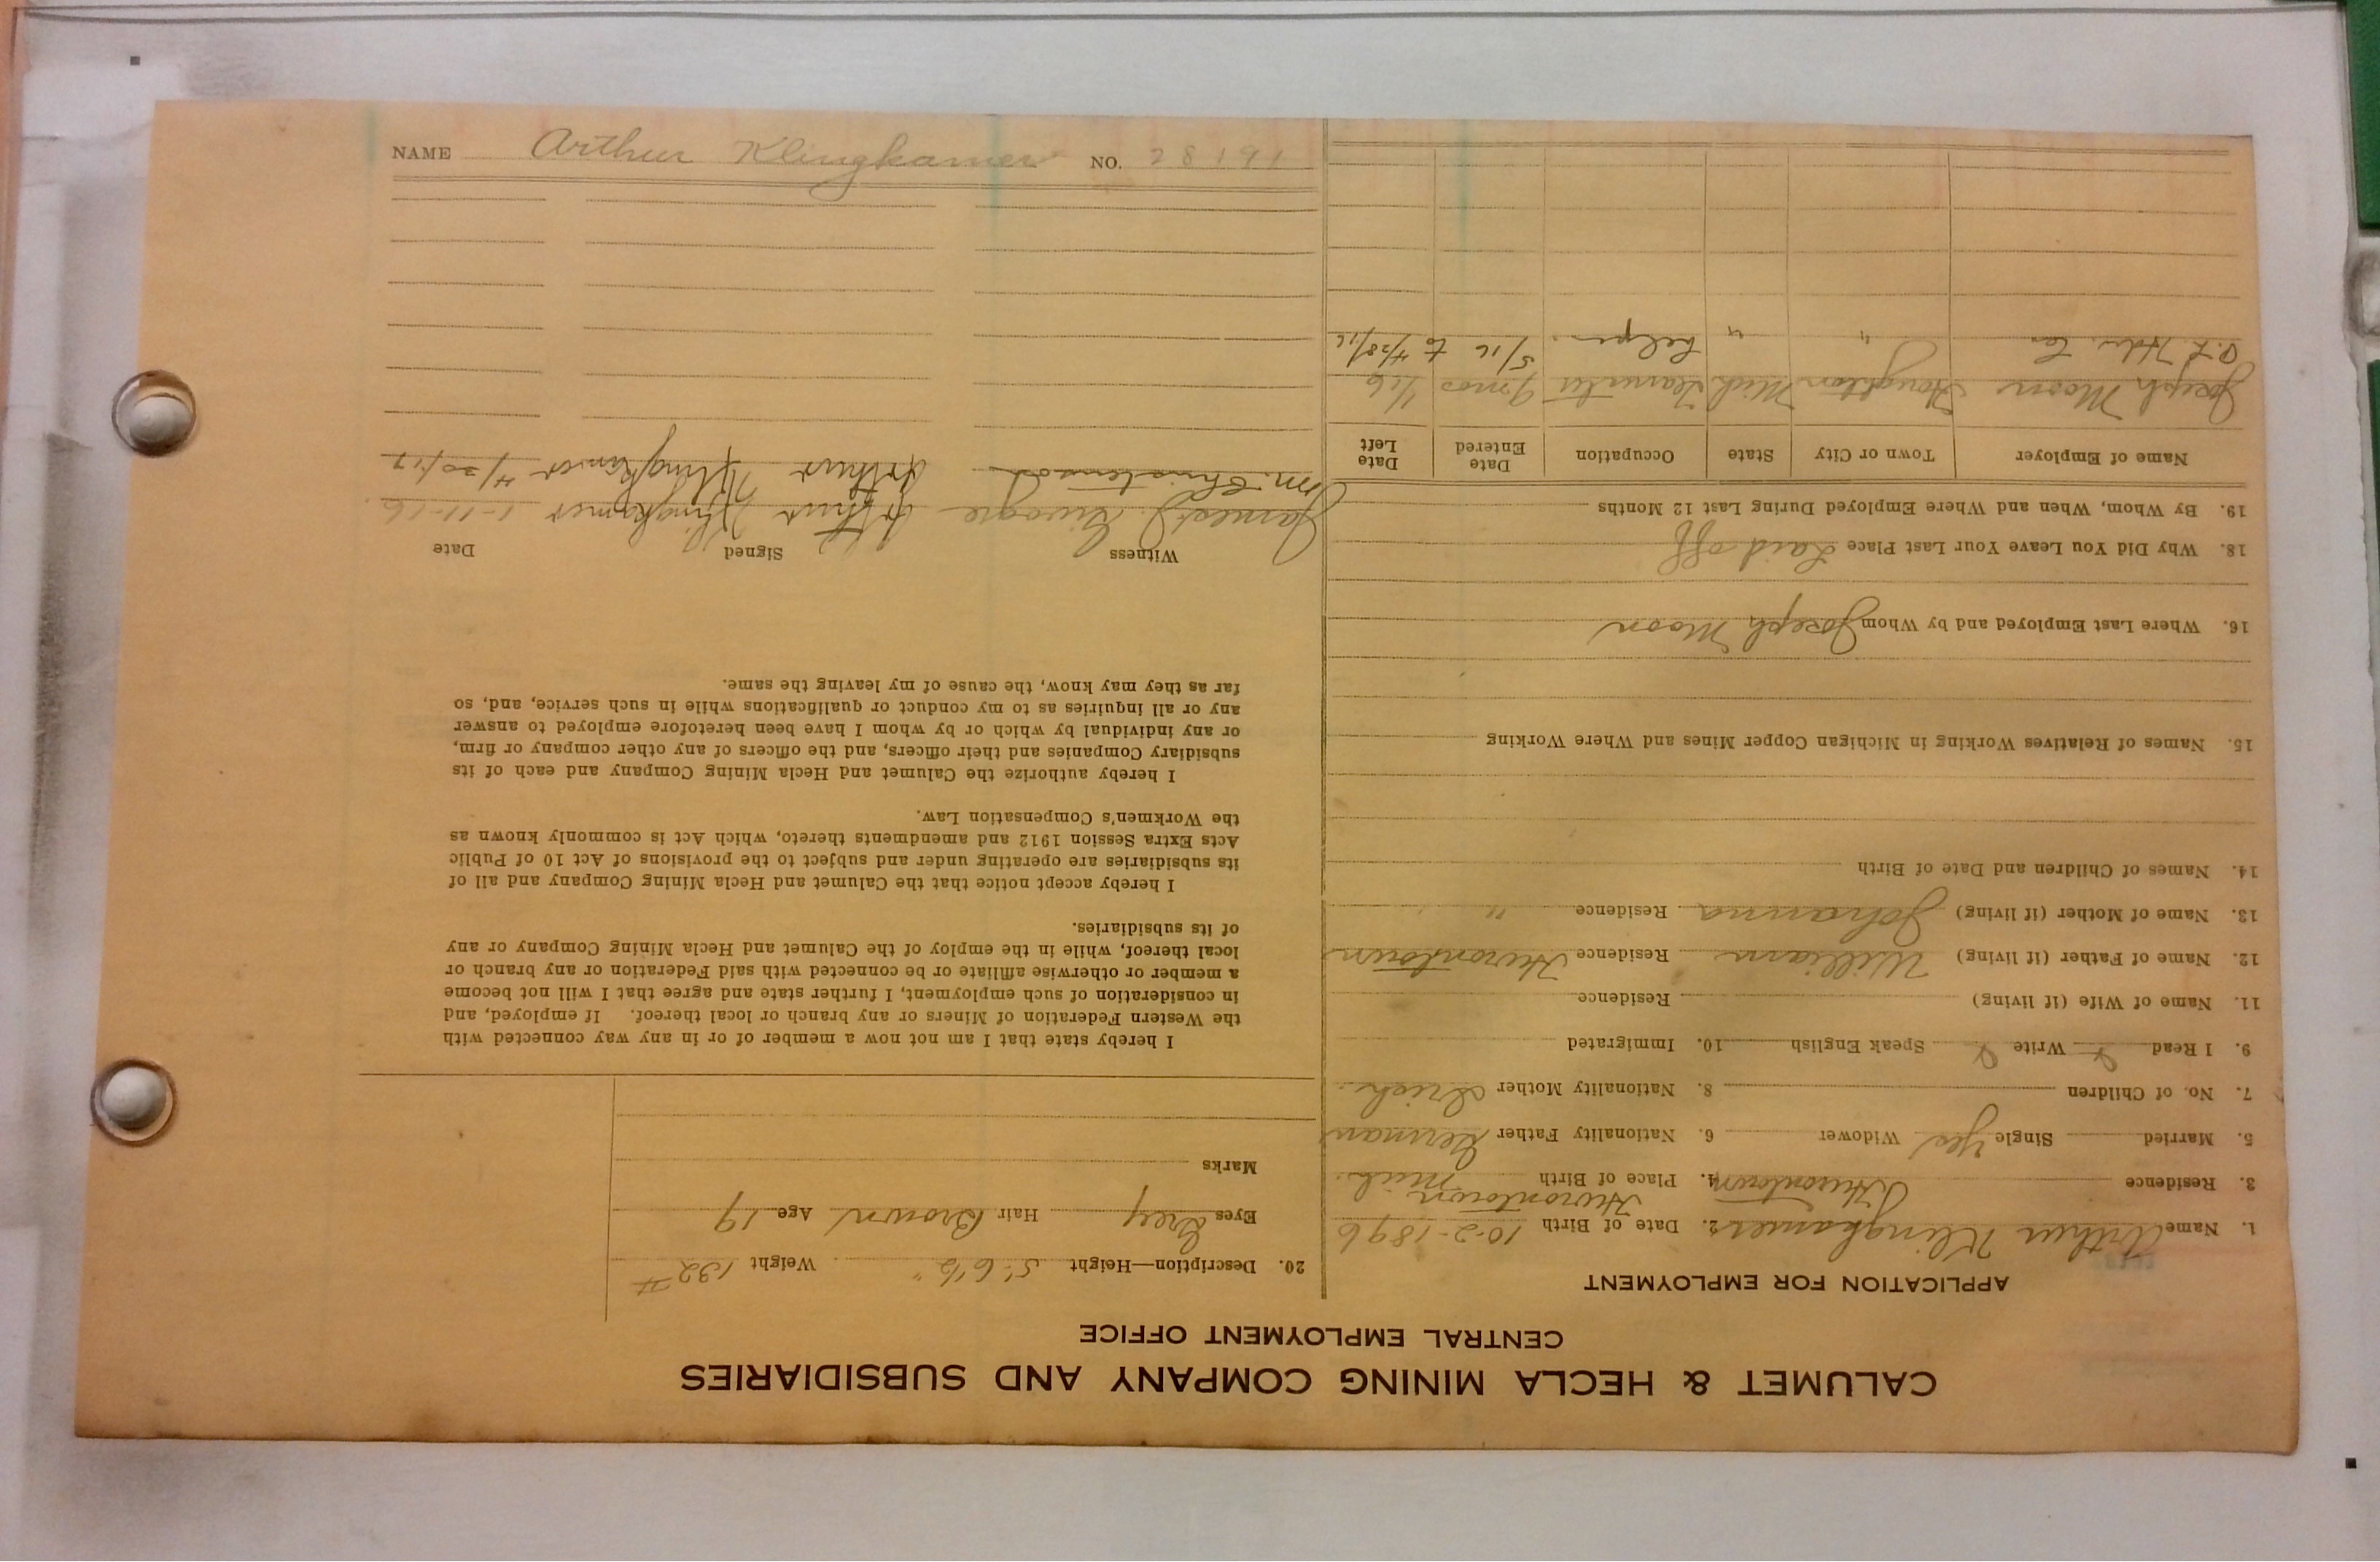 CALUMET & HECLA MINING COMPANY AND SUBSIDIARIES
CENTRAL EMPLOYMENT OFFICE
APPLICATION FOR EMPLOYMENT
1. Name Arthur Klinghamer 2. Date of Birth 10-2-1896
3. Residence Hurontown 4. Place of Birth Hurontown Mich.
5. Married Single Yes Widower 6. Nationality Father German
7. No. of Children 8. Nationality Mother Irish.
9. I Read Write Speak English 10. Immigrated
11. Name of Wife (if living) Residence
12. Name of Father (if living) William Residence Hurontown
13. Name of Mother (if living) Johanna Residence "
14. Names of Children and Date of Birth
15. Names of Relatives Working in Michigan Copper Mines and Where Working
16. Where Last Employed and by Whom Joseph Moon
18. Why Did You Leave Your Last Place Laid off
19. By Whom, When and Where Employed During Last 12 Months
Name of Employer Town or City State Occupation Date Entered Date Left
Joseph Moon Houghton Mich Teamster 9 mos 1/16
" " helper. 5/16 to 4/28/16
20. Description—Height 5' 6½" Weight 132 #
Eyes Grey Hair Brown Age 19
Marks
I hereby state that I am not now a member of or in any way connected with
the Western Federation of Miners or any branch or local thereof. If employed, and
in consideration of such employment, I further state and agree that I will not become
a member or otherwise affiliate or be connected with said Federation or any branch or
local thereof, while in the employ of the Calumet and Hecla Mining Company or any
of its subsidiaries.
I hereby accept notice that the Calumet and Hecla Mining Company and all of
its subsidiaries are operating under and subject to the provisions of Act 10 of Public
Acts Extra Session 1912 and amendments thereto, which Act is commonly known as
the Workmen's Compensation Law.
I hereby authorize the Calumet and Hecla Mining Company and each of its
subsidiary Companies and their officers, and the officers of any other company or firm,
or any individual by which or by whom I have been heretofore employed to answer
any or all inquiries as to my conduct or qualifications while in such service, and, so
far as they may know, the cause of my leaving the same.
Witness Signed Date
James J. Arthur Klinghamer 1-11-16
Arthur Klinghamer 4/30/17
NAME Arthur Klinghamer NO. 28191